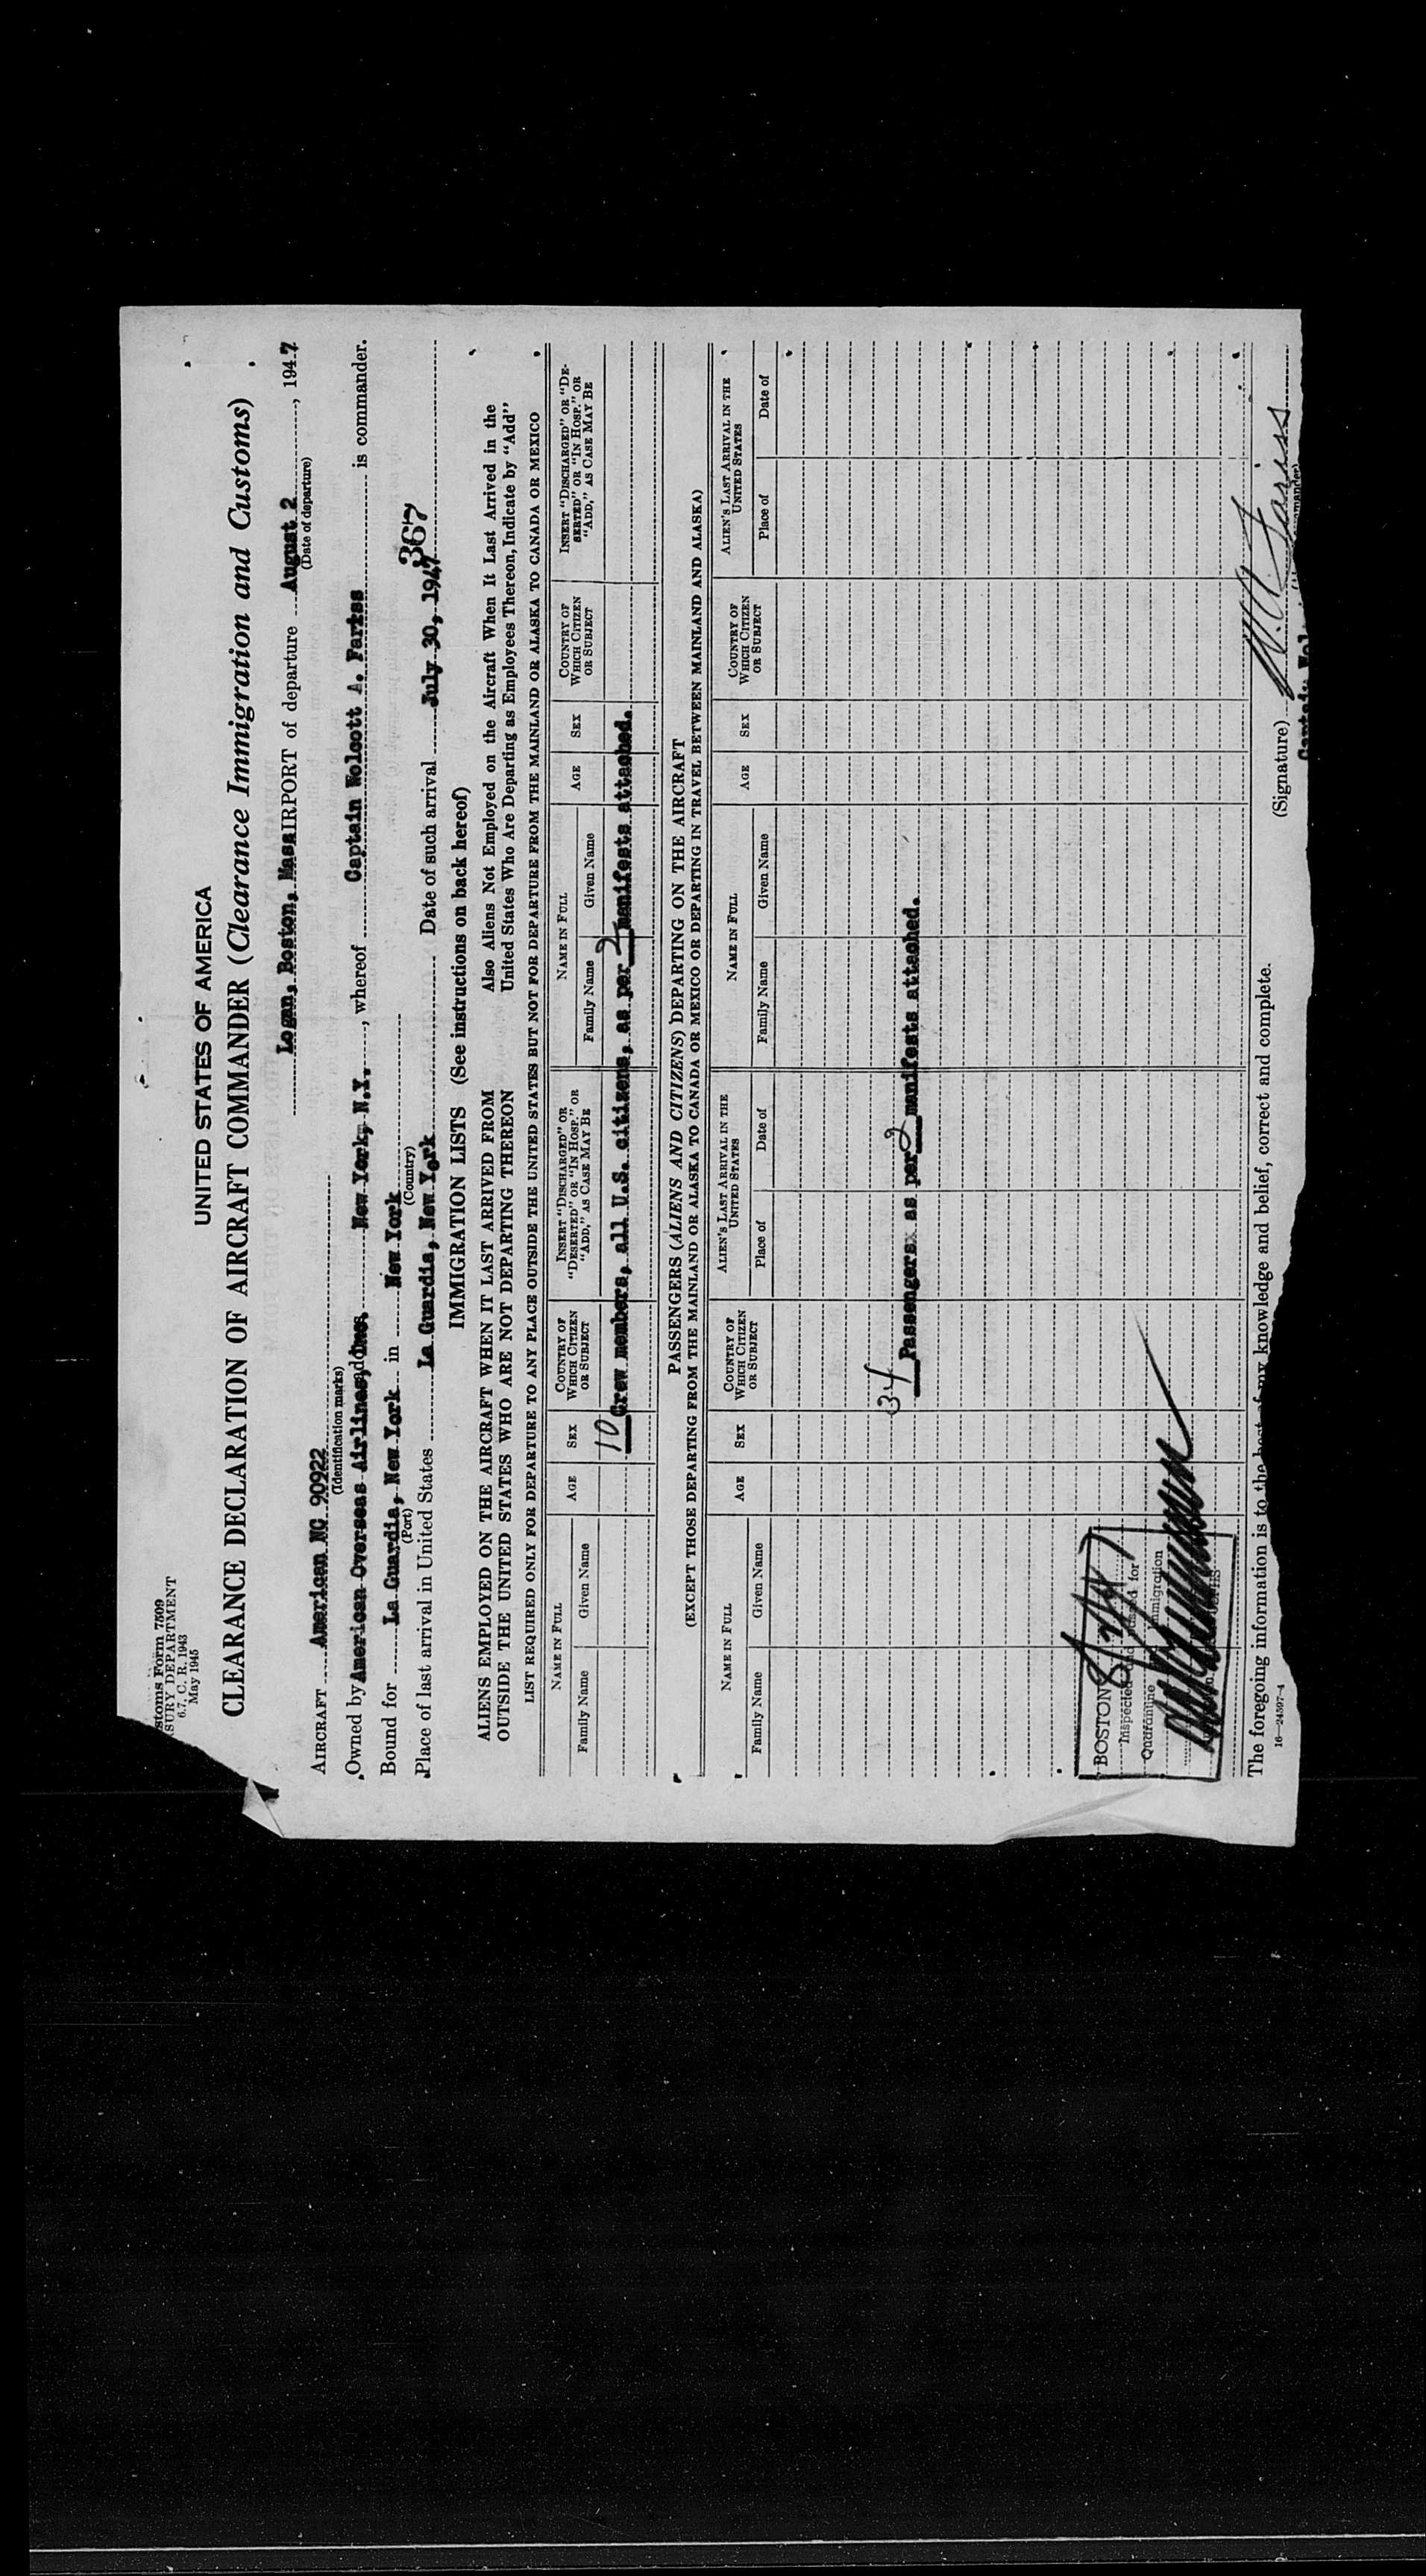 stoms Form 7509
SURY DEPARTMENT
6.7, C. R. 1943
May 1945
UNITED STATES OF AMERICA
CLEARANCE DECLARATION OF AIRCRAFT COMMANDER (Clearance Immigration and Customs)
Logan, Boston, Mass AIRPORT of departure August 2, 1947
(Date of departure)
AIRCRAFT American NC 90922
(Identification marks)
Owned by American Overseas Airlines, New York, N.Y., whereof Captain Wolcott A. Fariss is commander.
Bound for La Guardia, New York in New York
(Port) (Country)
367
Place of last arrival in United States La Guardia, New York Date of such arrival July 30, 1947
IMMIGRATION LISTS (See instructions on back hereof)
ALIENS EMPLOYED ON THE AIRCRAFT WHEN IT LAST ARRIVED FROM Also Aliens Not Employed on the Aircraft When It Last Arrived in the
OUTSIDE THE UNITED STATES WHO ARE NOT DEPARTING THEREON United States Who Are Departing as Employees Thereon, Indicate by "Add"
LIST REQUIRED ONLY FOR DEPARTURE TO ANY PLACE OUTSIDE THE UNITED STATES BUT NOT FOR DEPARTURE FROM THE MAINLAND OR ALASKA TO CANADA OR MEXICO
NAME IN FULL AGE SEX COUNTRY OF WHICH CITIZEN OR SUBJECT INSERT "DISCHARGED" OR "DESERTED" OR "IN HOSP." OR "ADD," AS CASE MAY BE NAME IN FULL AGE SEX COUNTRY OF WHICH CITIZEN OR SUBJECT INSERT "DISCHARGED" OR "DE-SERTED" OR "IN HOSP." OR "ADD," AS CASE MAY BE
Family Name Given Name Family Name Given Name
10 Crew members, all U.S. citizens, as per 2 manifests attached.
PASSENGERS (ALIENS AND CITIZENS) DEPARTING ON THE AIRCRAFT
(EXCEPT THOSE DEPARTING FROM THE MAINLAND OR ALASKA TO CANADA OR MEXICO OR DEPARTING IN TRAVEL BETWEEN MAINLAND AND ALASKA)
NAME IN FULL AGE SEX COUNTRY OF WHICH CITIZEN OR SUBJECT ALIEN'S LAST ARRIVAL IN THE UNITED STATES NAME IN FULL AGE SEX COUNTRY OF WHICH CITIZEN OR SUBJECT ALIEN'S LAST ARRIVAL IN THE UNITED STATES
Family Name Given Name Place of Date of Family Name Given Name Place of Date of
34 Passengers as per 2 manifests attached.
BOSTON
Inspected and passed for
Quarantine Immigration
The foregoing information is to the best of my knowledge and belief, correct and complete.
16—24597-4
(Signature) W. A. Fariss